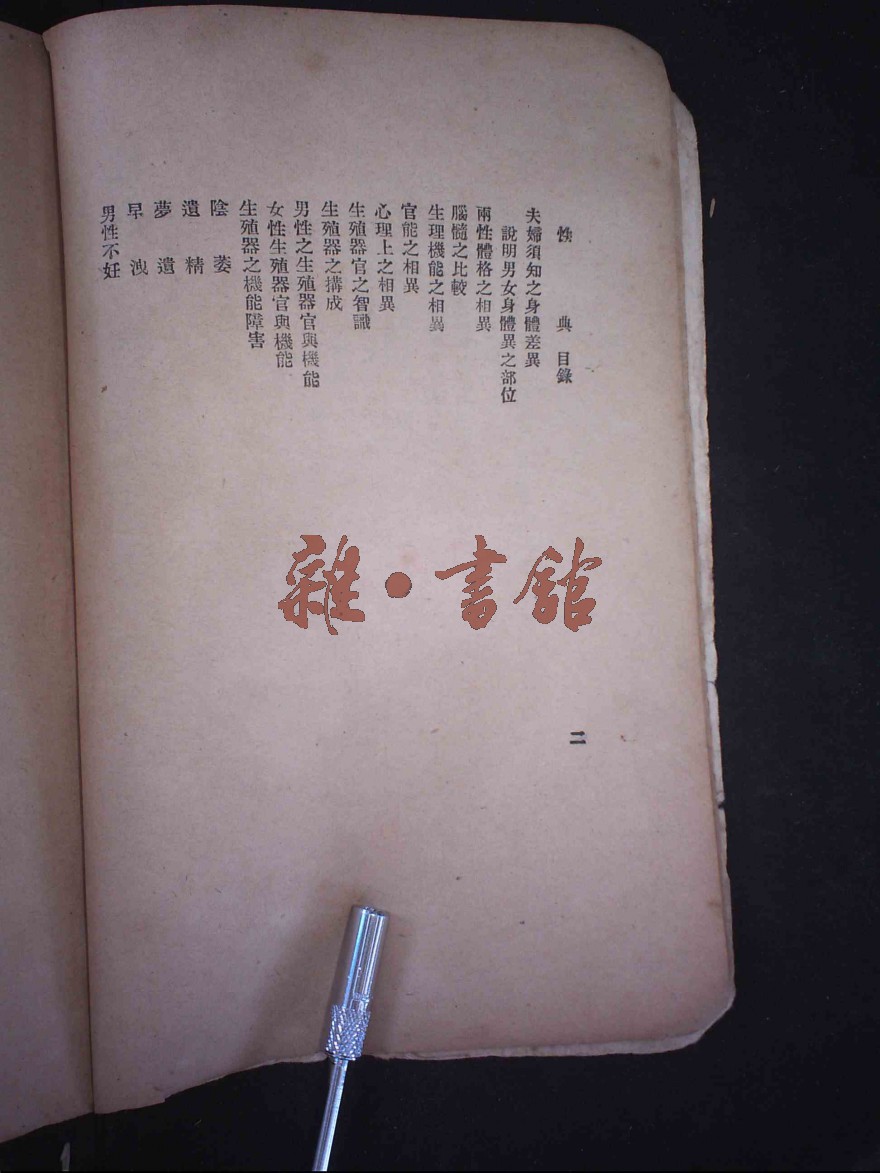 性典 目錄
夫婦須知之身體差異
說明男女身體異之部位
兩性體格之相異
腦髓之比較
生理機能之相異
官能之相異
心理上之相異
生殖器官之智識
生殖器之搆成
男性之生殖器官與機能
女性生殖器官與機能
生殖器之機能障害
陰萎
遺精
夢遺
早洩
男性不妊
二
雜•書館